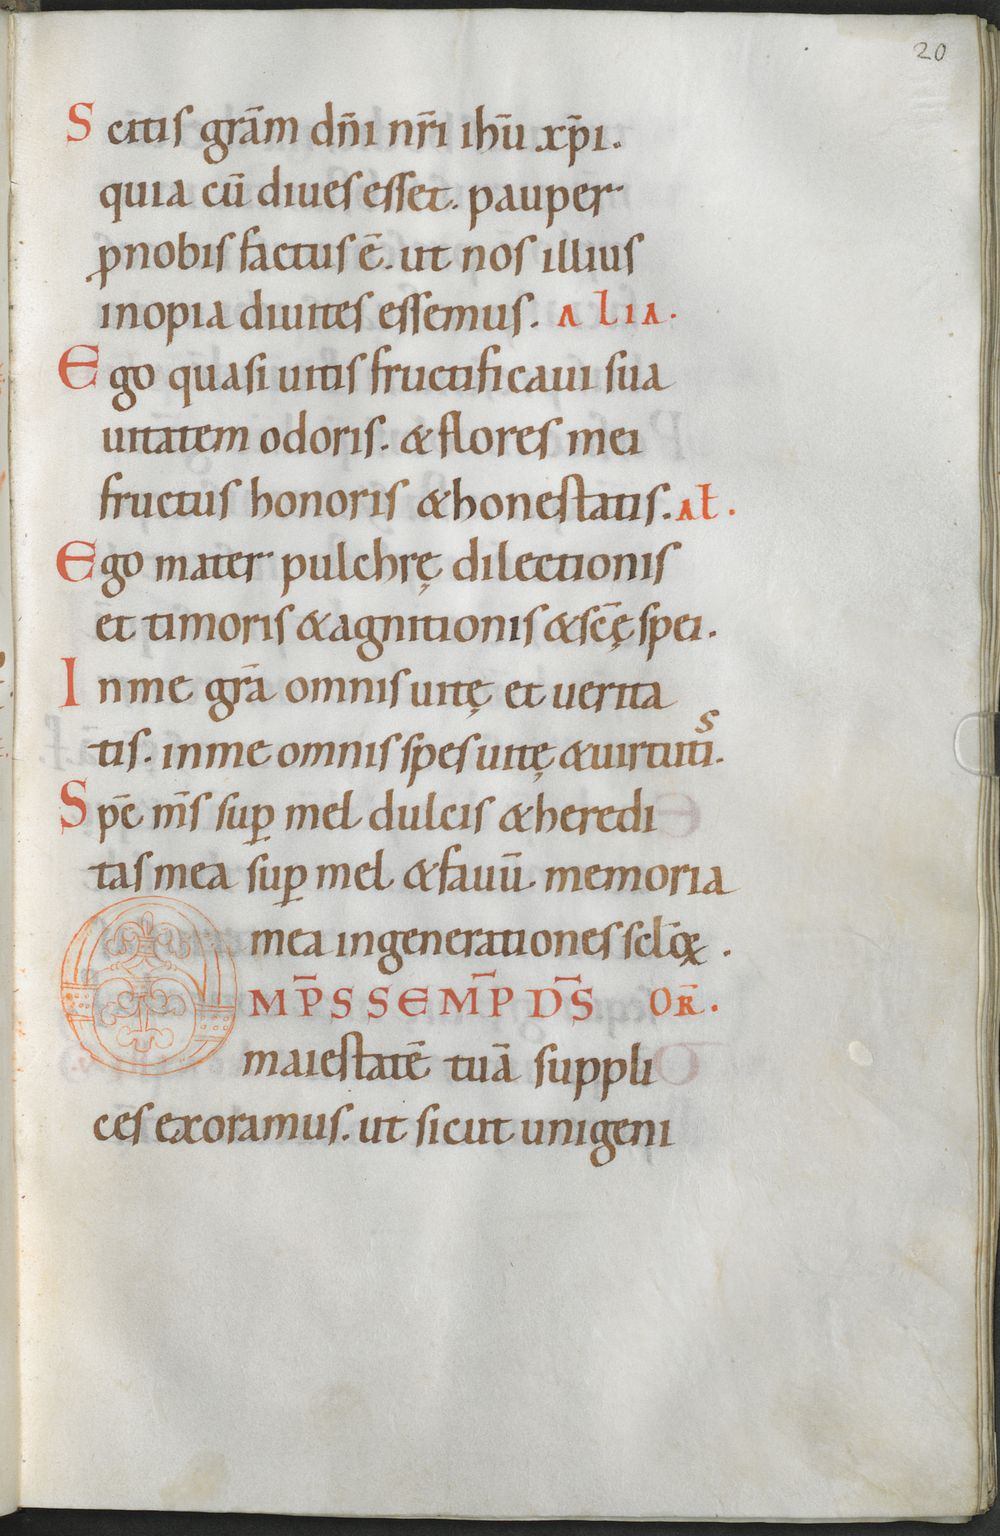 20
Scitis grām dn̄i nr̄i ihū xp̄i.
quia cū diues esset. pauper
ꝓ nobis factus ē. ut nos illius
inopia diuites essemus. ALIA.
Ego quasi uitis fructificaui sua
uitatem odoris. & flores mei
fructus honoris & honestatis. Aƚ.
Ego mater pulchrę dilectionis
et timoris & agnitionis & sc̄ę spei.
In me grā omnis uitę et uerita
tis. in me omnis spes uitę & uirtutis.
Spc̄ m̄s suꝑ mel dulcis & heredi
tas mea suꝑ mel & fauū memoria
mea in generationes scłoꝝ.
OMP̄S SEMP̄ DS̄ OR̄.
maiestatē tuā suppli
ces exoramus. ut sicut unigeni